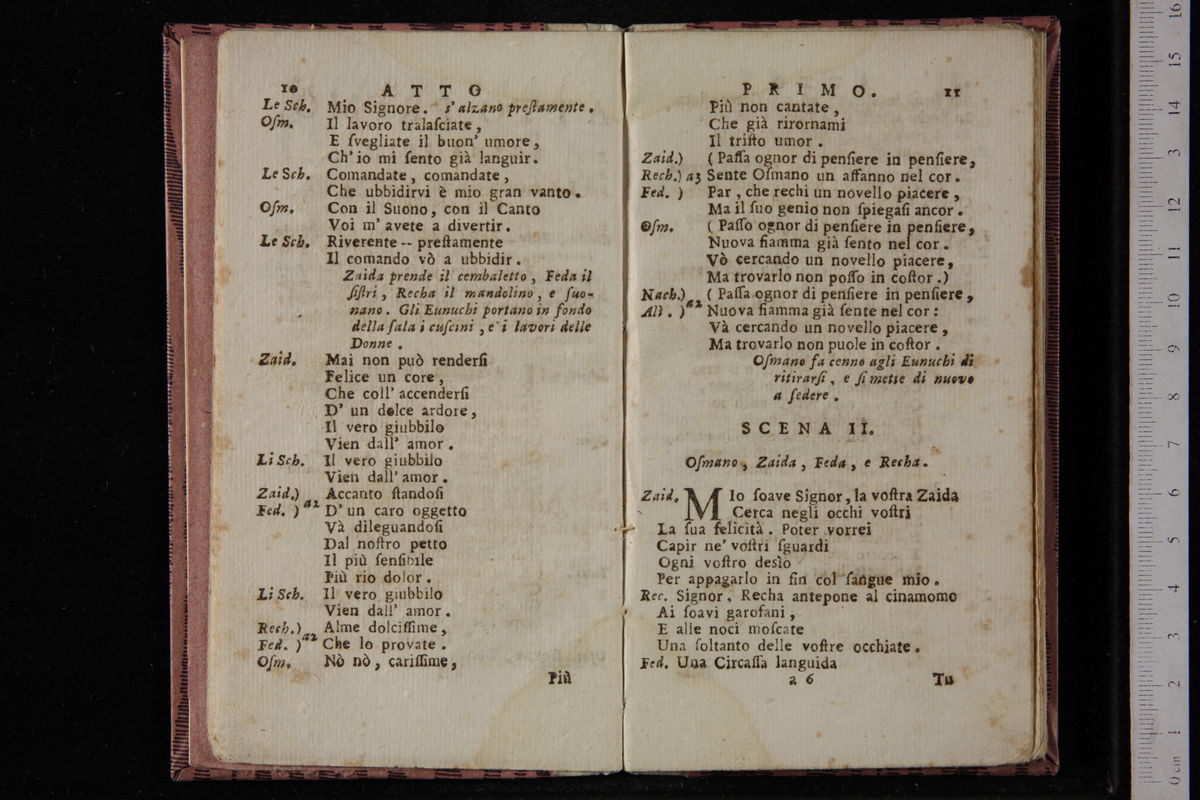 10 ATTO
Le Sch. Mio Signore. s'alzano preſtamente.
Oſm. Il lavoro tralaſciate,
E ſvegliate il buon' umore,
Ch'io mi ſento già languir.
Le Sch. Comandate, comandate,
Che ubbidirvi è mio gran vanto.
Oſm. Con il Suono, con il Canto
Voi m'avete a divertir.
Le Sch. Riverente -- preſtamente
Il comando vò a ubbidir.
Zaida prende il cembaletto, Feda il
ſiſtri, Recha il mandolino, e ſuo-
nano. Gli Eunuchi portano in fondo
della ſala i cuſcini, e' i lavori delle
Donne.
Zaid. Mai non può renderſi
Felice un core,
Che coll' accenderſi
D' un dolce ardore,
Il vero giubbilo
Vien dall' amor.
Li Sch. Il vero giubbilo
Vien dall' amor.
Zaid.) a2 Accanto ſtandoſi
Fed. ) D' un caro oggetto
Và dileguandoſi
Dal noſtro petto
Il più ſenſibile
Più rio dolor.
Li Sch. Il vero giubbilo
Vien dall' amor.
Rech.) a2 Alme dolciſſime,
Fed. ) Che lo provate.
Oſm. Nò nò, cariſſime,
Più
PRIMO. 11
Più non cantate,
Che già rirornami
Il triſto umor.
Zaid.) (Paſſa ognor di penſiere in penſiere,
Rech.) a3 Sente Oſmano un affanno nel cor.
Fed. ) Par, che rechi un novello piacere,
Ma il ſuo genio non ſpiegaſi ancor.
Oſm. (Paſſo ognor di penſiere in penſiere,
Nuova fiamma già ſento nel cor.
Vò cercando un novello piacere,
Ma trovarlo non poſſo in coſtor.)
Nach.) a2 (Paſſa ognor di penſiere in penſiere,
Alì. ) Nuova fiamma già ſente nel cor:
Và cercando un novello piacere,
Ma trovarlo non puole in coſtor.
Oſmano fa cenno agli Eunuchi di
ritirarſi, e ſi mette di nuovo
a ſedere.
SCENA II.
Oſmano, Zaida, Feda, e Recha.
Zaid. MIo ſoave Signor, la voſtra Zaida
Cerca negli occhi voſtri
La ſua felicità. Poter vorrei
Capir ne' voſtri ſguardi
Ogni voſtro desìo
Per appagarlo in fin col ſangue mio.
Rec. Signor, Recha antepone al cinamomo
Ai ſoavi garofani,
E alle noci moſcate
Una ſoltanto delle voſtre occhiate.
Fed. Una Circaſſa languida
a 6 Tu
0 cm 1 2 3 4 5 6 7 8 9 10 11 12 13 14 15 16